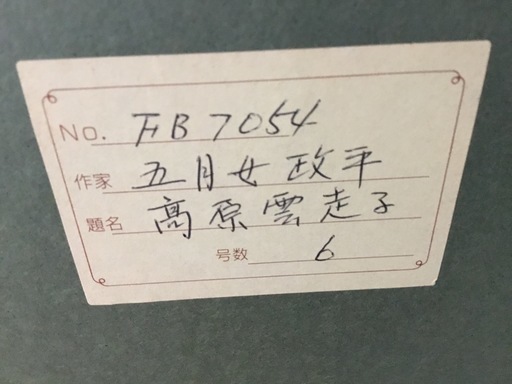 No. FB7054
作家 五月女政平
題名 高原雲走る
号数 6